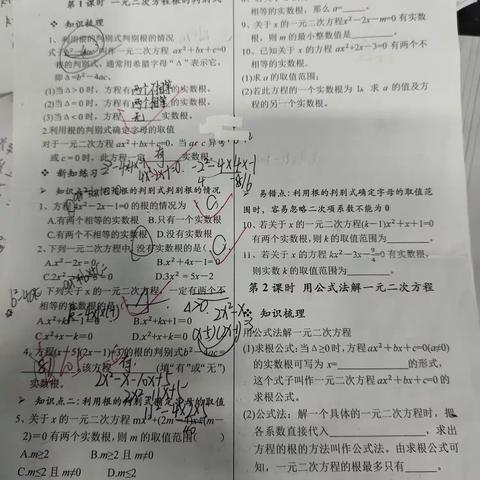 第1课时 一元二次方程根的判别式
知识梳理
1、利用根的判别式判别根的情况
式子b²-4ac叫作一元二次方程 ax²+bx+c=0
根的判别式，通常用希腊字母“Δ”表示它，
即Δ=b²-4ac.
(1)当Δ>0时，方程有两个不相等的实数根.
(2)当Δ=0时，方程有两个相等的实数根.
(3)当Δ<0时，方程 无 实数根.
2.利用根的判别式确定字母的取值
对于一元二次方程 ax²+bx+c=0，当a与c异号
或c=0时，此方程一定 有 实数根.
新知练习
知识点一：根的判别式判别根的情况
1、方程 x²-2x-1=0的根的情况为
A.有两个相等的实数根 B.只有一个实数根
C.有两个不相等的实数根 D.没有实数根
2、下列一元二次方程中，没有实数根的是
A.x²-2x=0 B.x²+4x-1=0
C.2x² D.3x²=5x-2
3、下列关于x的一元二次方程，一定有两个不
相等的实数根的是
B.x²+kx+1=0
C.x²+x-k=0 D.x²+x+k=0
4、方程(x-5)(2x-1)=3的根的判别式b²-4ac=
该方程 有 (填“有”或“无”)
实数根.
2x²-x-10x+5
知识点二：利用根的判别式确定字母的取值
5、关于x的一元二次方程mx²+(2m
2)=0有两个实数根，则m的取值范围(
A.m≥2 B.m≥2 且 m≠0
C.m≤2 且 m≠0 D.m≤2
相等的实数根，那么 a=
9、关于x的一元二次方程x²-2x-m=0有实数
根，则m的最小整数值是
10、已知关于x的方程 ax²+2x-3=0 有两个不
相等的实数根.
(1)求a的取值范围；
(2)若此方程的一个实数根为1，求a的值及方
程的另一个实数根.
易错点：利用根的判别式确定字母的取值范
围时，容易忽略二次项系数不能为0
10、若关于x的一元二次方程(k-1)x²+x+1=0
有两个实数根,则k的取值范围为
11、若关于x的方程 kx²-3x-9/4=0有实数根，
则实数k的取值范围为
第2课时 用公式法解一元二次方程
知识梳理
用公式法解一元二次方程
(1)求根公式：当Δ≥0时，方程ax²+bx+c=0(a≠0)
的实数根可写为x= 的形式，
这个式子叫作一元二次方程 ax²+bx+c=0 的
求根公式.
(2)公式法：解一个具体的一元二次方程时，把
各系数直接代入 ，求出
方程的根的方法叫作公式法。由求根公式可
知，一元二次方程的根最多只有 .